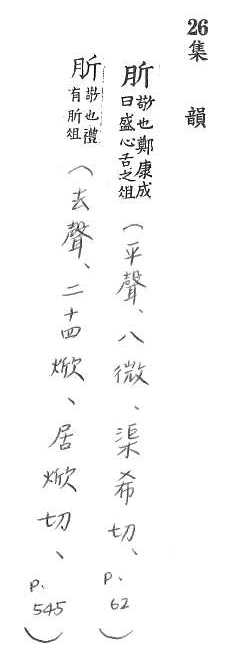 26集 韻
肵敬也鄭康成曰盛心舌之俎(平聲、八微、渠希切、P.62)
肵敬也禮有肵俎(去聲、二十四焮、居焮切、P.545)